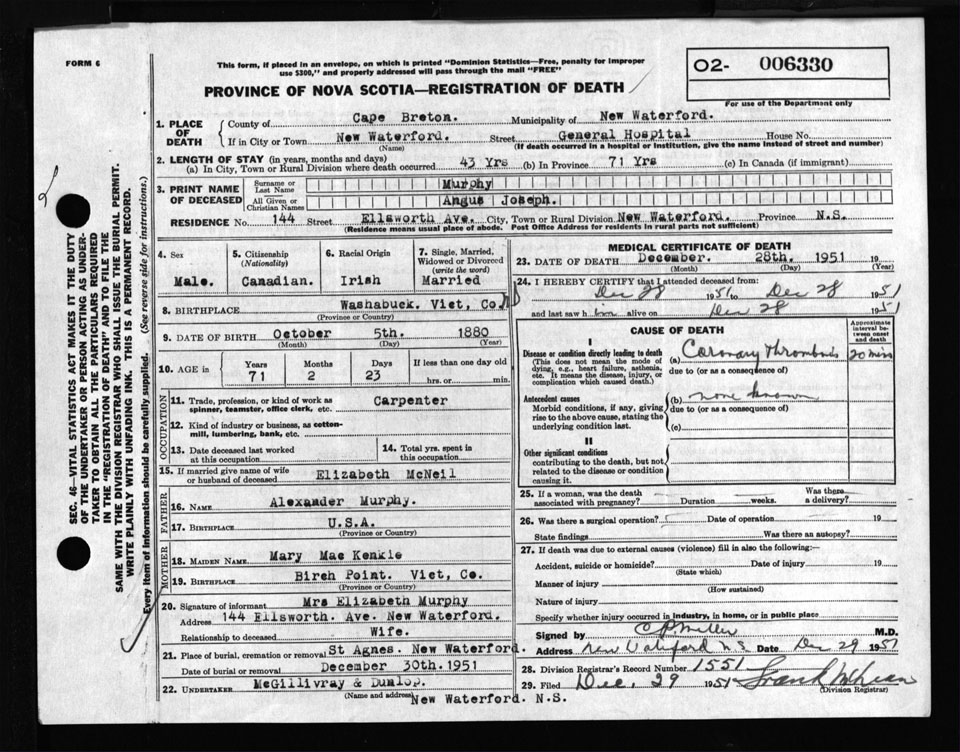 FORM 6
This form, if placed in an envelope, on which is printed "Dominion Statistics—Free, penalty for improper
use $300," and properly addressed will pass through the mail "FREE"
02- 006330
For use of the Department only
PROVINCE OF NOVA SCOTIA—REGISTRATION OF DEATH
SEC. 46—VITAL STATISTICS ACT MAKES IT THE DUTY
OF THE UNDERTAKER OR PERSON ACTING AS UNDER-
TAKER TO OBTAIN ALL THE PARTICULARS REQUIRED
IN THE "REGISTRATION OF DEATH" AND TO FILE THE
SAME WITH THE DIVISION REGISTRAR WHO SHALL ISSUE THE BURIAL PERMIT.
WRITE PLAINLY WITH UNFADING INK. THIS IS A PERMANENT RECORD.
Every item of information should be carefully supplied. (See reverse side for instructions.)
1. PLACE OF DEATH
County of Cape Breton. Municipality of New Waterford.
If in City or Town New Waterford. Street General Hospital House No.
(Name) (If death occurred in a hospital or institution, give the name instead of street and number)
2. LENGTH OF STAY (in years, months and days)
(a) In City, Town or Rural Division where death occurred 43 Yrs (b) In Province 71 Yrs (c) In Canada (if immigrant)
3. PRINT NAME OF DECEASED
Surname or Last Name Murphy
All Given or Christian Names Angus Joseph.
RESIDENCE No. 144 Street Ellsworth Ave. City, Town or Rural Division New Waterford. Province N.S.
(Residence means usual place of abode. Post Office Address for residents in rural parts not sufficient)
4. Sex Male.
5. Citizenship (Nationality) Canadian.
6. Racial Origin Irish
7. Single, Married, Widowed or Divorced (write the word) Married
8. BIRTHPLACE Washabuck. Vict, Co.
(Province or Country)
9. DATE OF BIRTH October 5th. 1880
(Month) (Day) (Year)
10. AGE in Years 71 Months 2 Days 23 If less than one day old hrs. or min.
OCCUPATION
11. Trade, profession, or kind of work as spinner, teamster, office clerk, etc. Carpenter
12. Kind of industry or business, as cotton-mill, lumbering, bank, etc.
13. Date deceased last worked at this occupation
14. Total yrs. spent in this occupation
15. If married give name of wife or husband of deceased Elizabeth McNeil
FATHER
16. NAME Alexander Murphy.
17. BIRTHPLACE U.S.A.
(Province or Country)
MOTHER
18. MAIDEN NAME Mary Mac Kenkie
19. BIRTHPLACE Birch Point. Vict, Co.
(Province or Country)
20. Signature of informant Mrs Elizabeth Murphy
Address 144 Ellsworth. Ave. New Waterford.
Relationship to deceased Wife.
21. Place of burial, cremation or removal St Agnes. New Waterford.
Date of burial or removal December 30th. 1951
22. UNDERTAKER McGillivray & Dunlop.
(Name and address) New Waterford. N.S.
MEDICAL CERTIFICATE OF DEATH
23. DATE OF DEATH December. 28th. 1951 19
(Month) (Day) (Year)
24. I HEREBY CERTIFY that I attended deceased from:
Dec 28 1951 to Dec 28 1951
and last saw him alive on Dec 28 1951
CAUSE OF DEATH
Approximate interval between onset and death
I
Disease or condition directly leading to death (a) Coronary Thrombosis 20 mins
(This does not mean the mode of dying, e.g., heart failure, asthenia, etc. It means the disease, injury, or complication which caused death.)
due to (or as a consequence of)
Antecedent causes (b) none known
Morbid conditions, if any, giving rise to the above cause, stating the underlying condition last.
due to (or as a consequence of)
(c)
II
Other significant conditions contributing to the death, but not related to the disease or condition causing it.
25. If a woman, was the death associated with pregnancy? Duration weeks. Was there a delivery?
26. Was there a surgical operation? Date of operation 19
State findings Was there an autopsy?
27. If death was due to external causes (violence) fill in also the following:-
Accident, suicide or homicide? Date of injury 19
(State which)
Manner of injury
(How sustained)
Nature of injury
Specify whether injury occurred in industry, in home, or in public place
Signed by C P Miller M.D.
Address New Waterford N.S. Date Dec 29 1951
28. Division Registrar's Record Number 1551
29. Filed Dec. 29 1951 Frank
(Division Registrar)